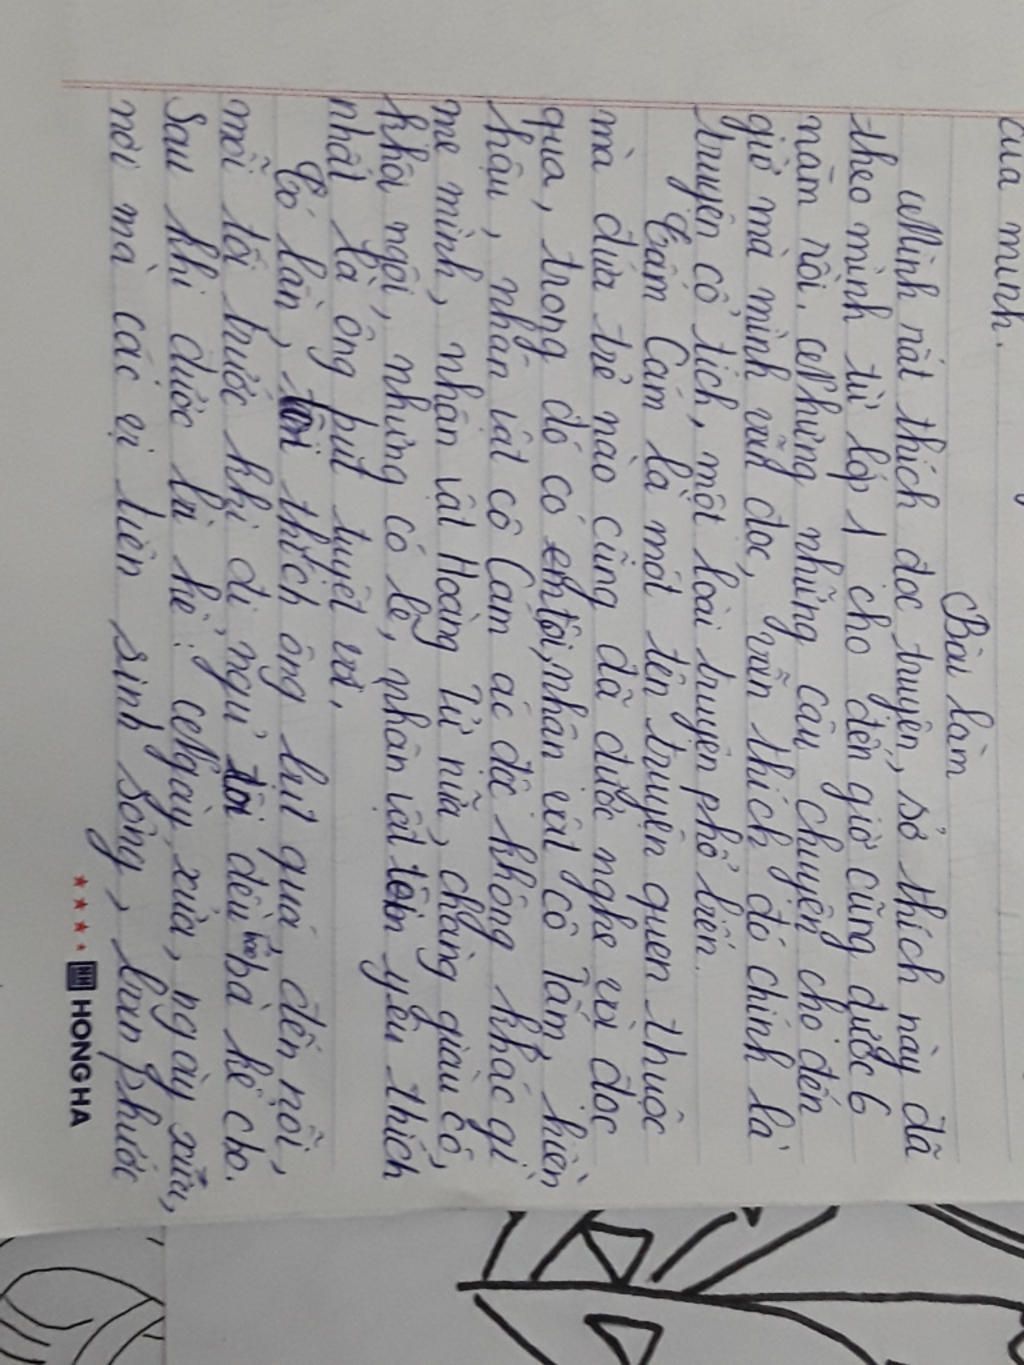 của mình.
Bài làm
Mình rất thích đọc truyện, sở thích này đã
theo mình từ lớp 1 cho đến giờ cũng được 6
năm rồi. Nhưng những câu chuyện cho đến
giờ mà mình vẫn đọc, vẫn thích đó chính là
truyện cổ tích, một loài truyện phổ biến.
Tấm Cám là một tên truyện quen thuộc
mà đứa trẻ nào cũng đã được nghe và đọc
qua, trong đó có em tôi, nhân vật cô Tấm hiền
hậu, nhân vật cô Cám ác độc không khác gì
mẹ mình, nhân vật Hoàng Tử nữa, chàng giàu có,
khôi ngôi, nhưng có lẽ, nhân vật tôi yêu thích
nhất là ông bụt tuyệt vời.
Có lần, tôi thích ông bụt quá, đến nỗi,
mỗi tối trước khi đi ngủ tôi đều bà kể cho.
Sau khi được bà kể: Ngày xửa, ngày xưa,
nơi mà các vị tiên sinh sống, ban phước
HONG HA